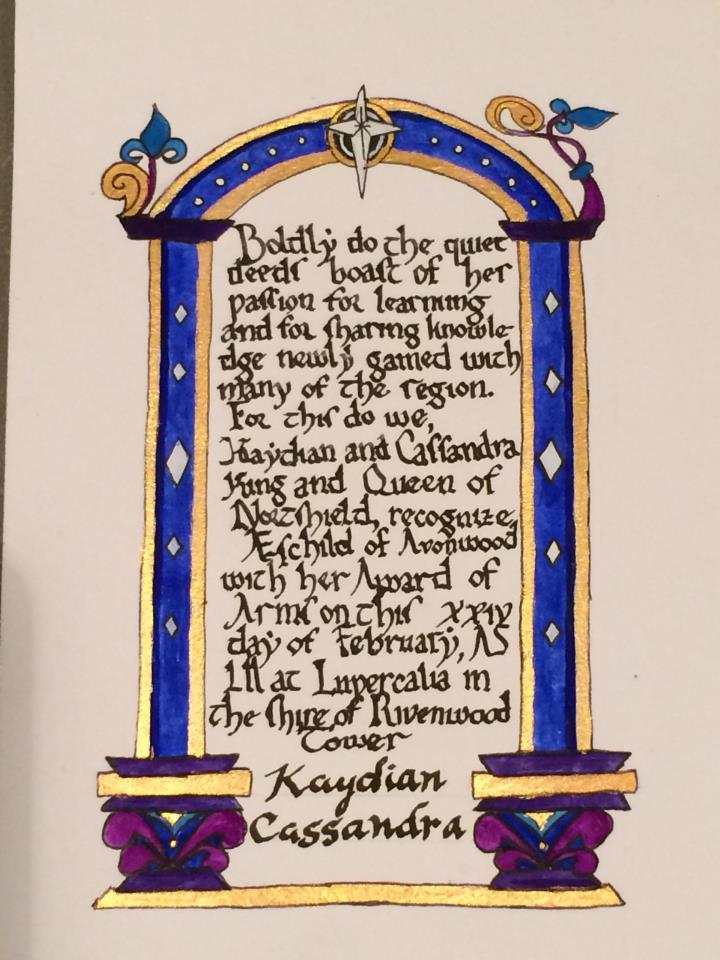 Boldly do the quiet
deeds boast of her
passion for learning
and for sharing knowle-
dge newly gained with
many of the region.
For this do we,
Kaydian and Cassandra
King and Queen of
Northshield, recognize
Æschild of Avonwood
with her Award of
Arms on this xxiv
day of February, AS
LII at Lupercalia in
the shire of Rivenwood
Tower
Kaydian
Cassandra